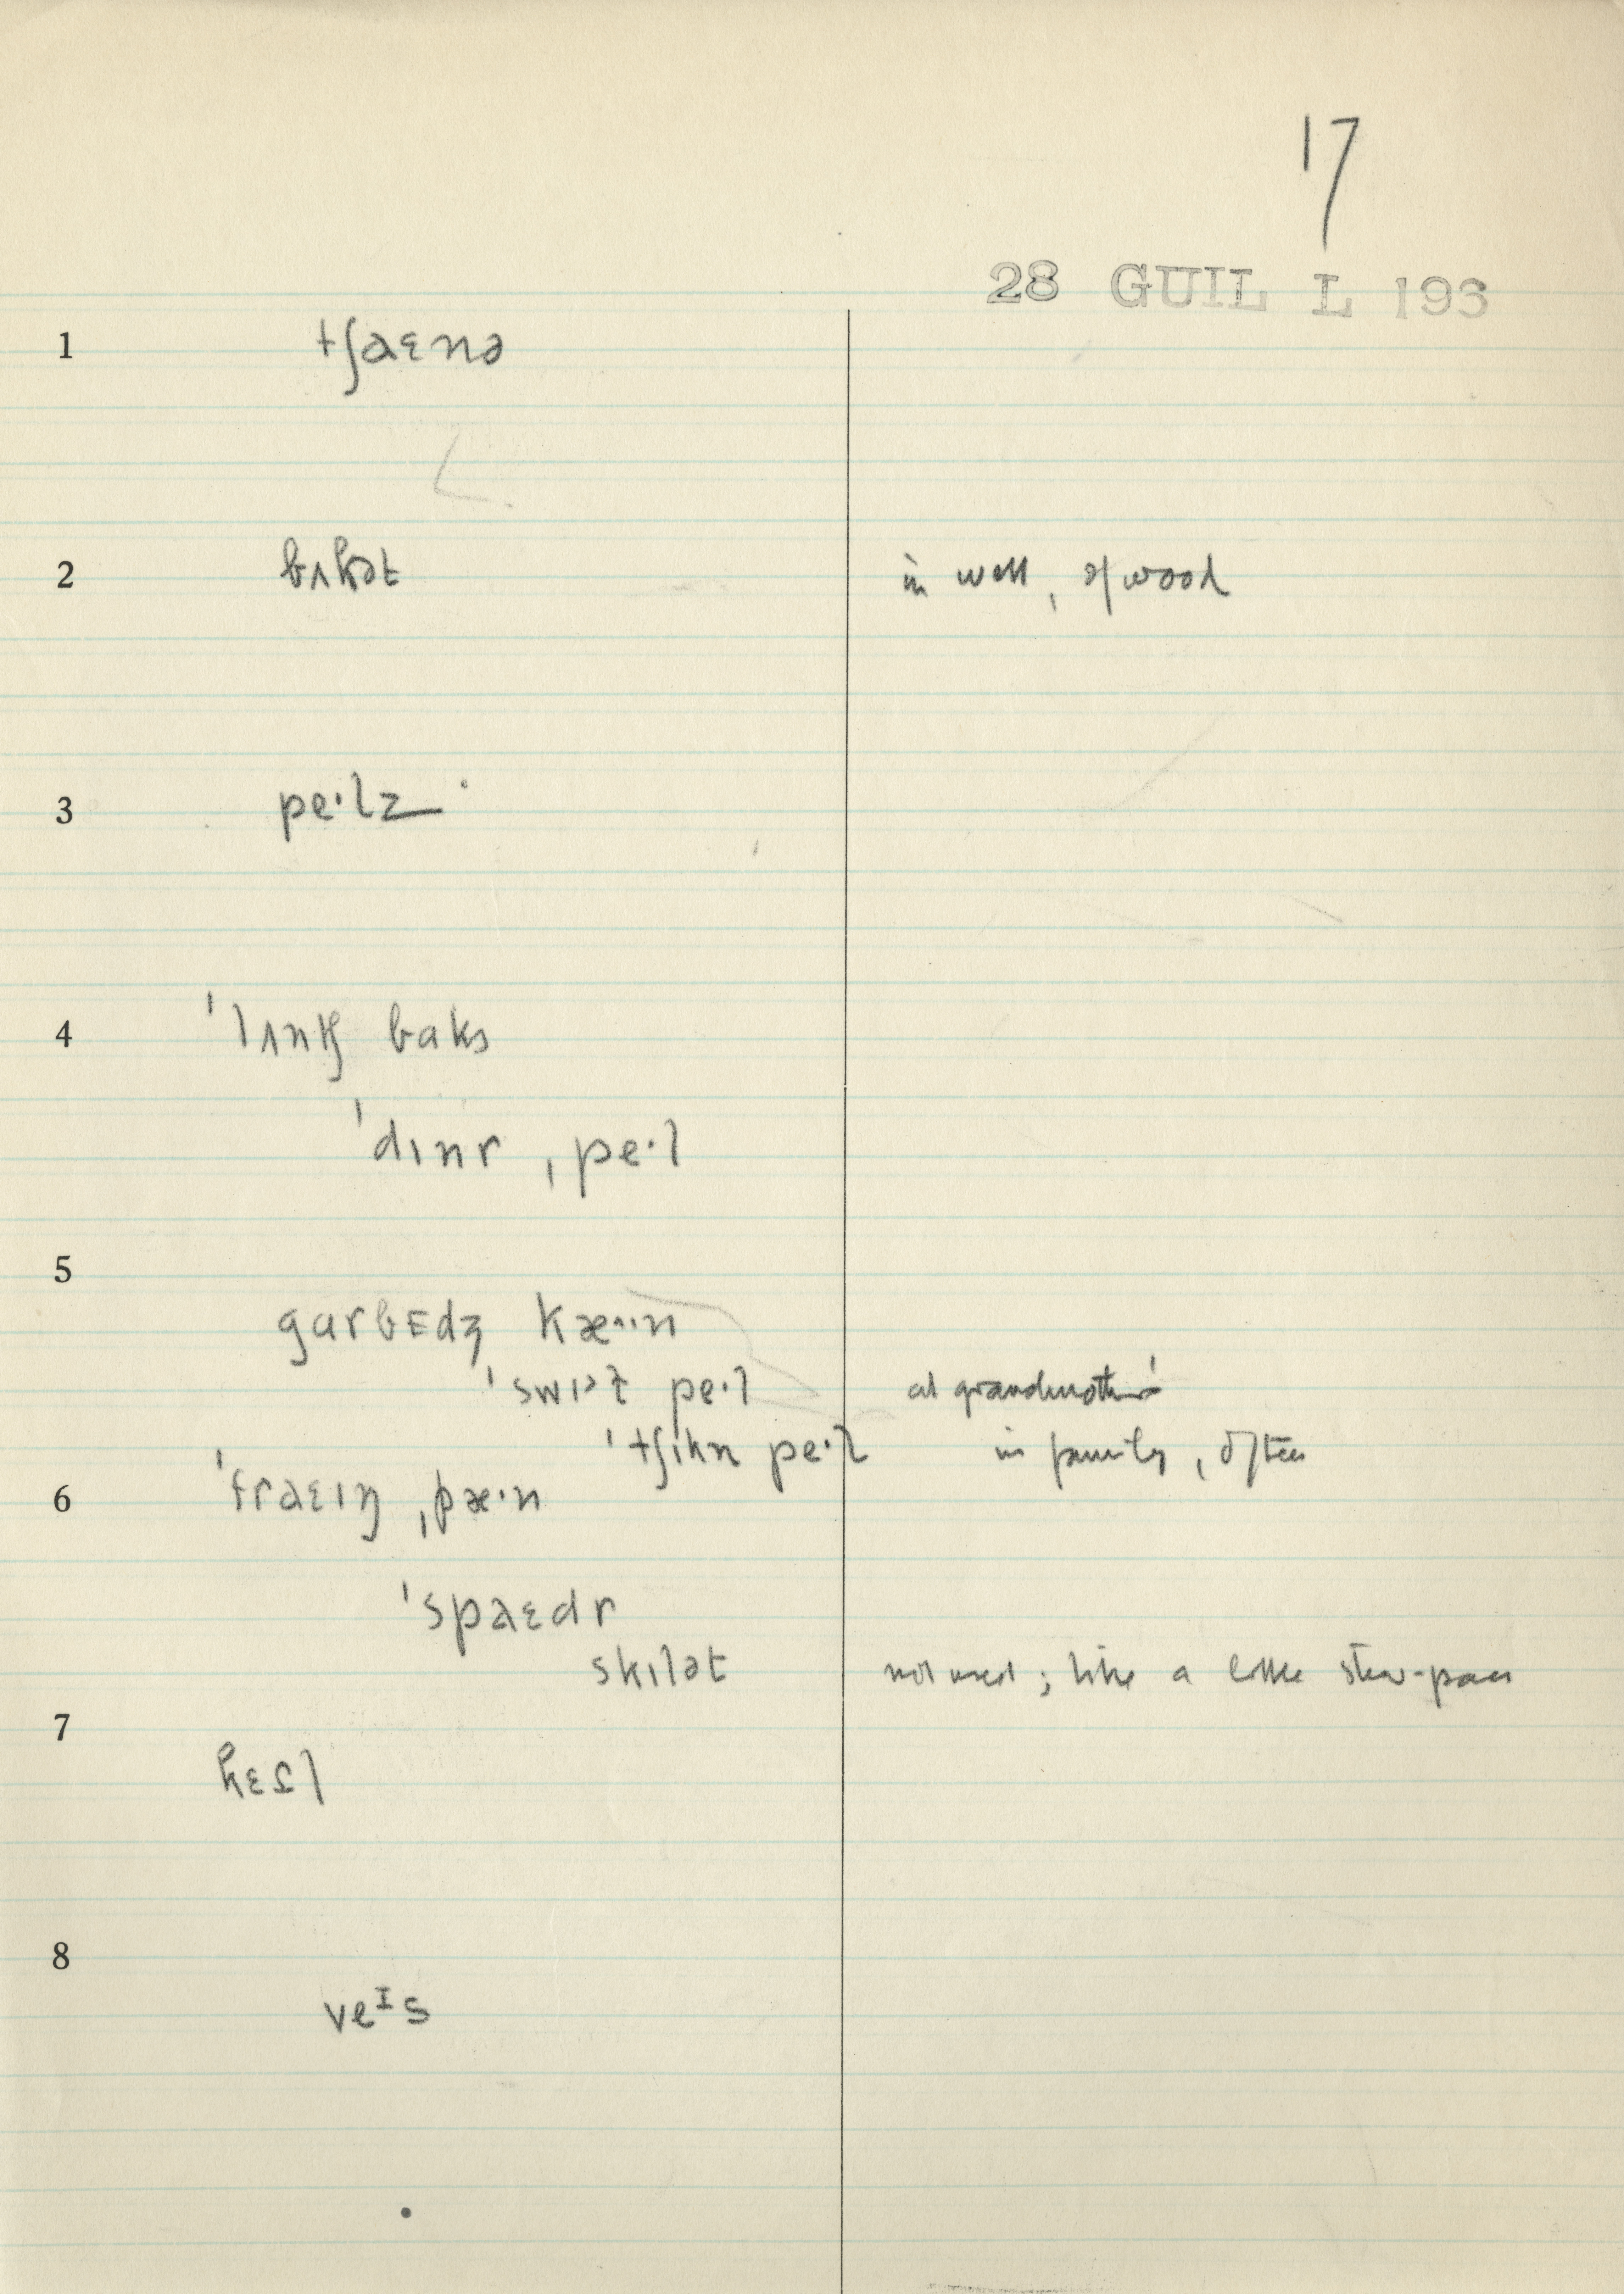 17
28 GUIL L 193
1 tʃaɛnə
2 bʌkət in well, of wood
3 pe·lz
4 ˈlʌntʃ baks
ˈdɪnr ˌpe·l
5
garbEdʒ kæ··n
ˈswɪət pe·l at grandmother's
ˈtʃɪkn pe·l in family, often
6 ˈfraɛɪŋ ˌpæ·n
ˈspaɛdr
skɪlət not used; like a little stew-pan
7
kɛtl
8
veᴵs